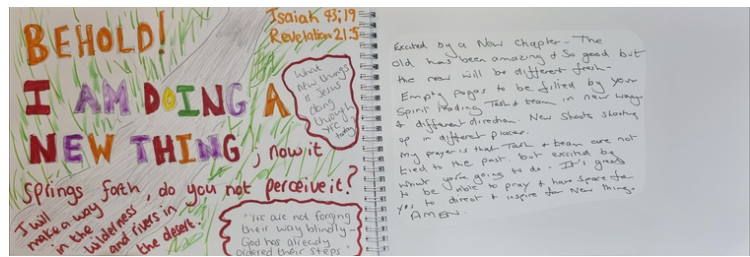 BEHOLD!
Isaiah 43;19
Revelation 21:5
I AM DOING A
NEW THING; now it
springs forth, do you not perceive it?
I will
make a way
in the
wilderness
and rivers in
the desert.
What
new things
is Jesus
doing
through
YFC
today?
"YFC are not forging
their way blindly -
God has already
ordered their steps"
Excited by a New Chapter - The
old has been amazing & so good but
the new will be different fresh -
Empty pages to be filled by your
Spirit leading Task & team in new ways
& different direction. New Shoots shooting
up in different places.
My prayer is that Task & team are not
tied to the past. but excited by
what you're going to do. It's great
to be able to pray & have space for
you to direct & inspire for New things.
AMEN.